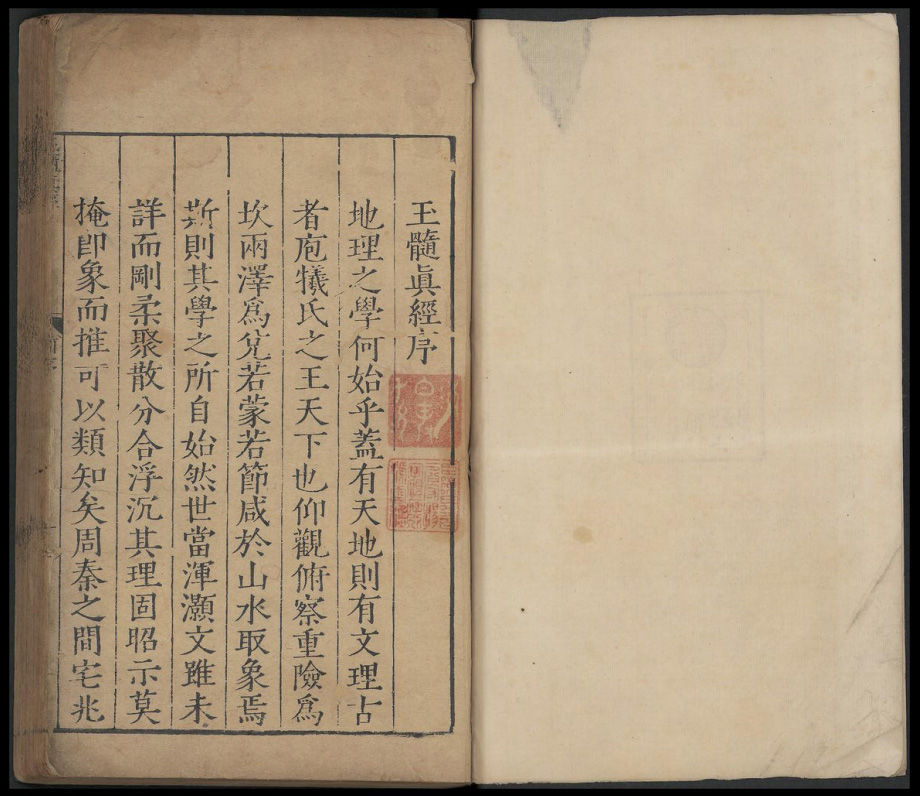 玉髓眞經序
地理之學何始乎蓋有天地則有文理古
者庖犧氏之王天下也仰觀俯察重險爲
坎兩澤爲兌若蒙若節咸於山水取象焉
斯則其學之所自始然世當渾灝文雖未
詳而剛柔聚散分合浮沉其理固昭示莫
掩卽象而推可以類知矣周秦之間宅兆